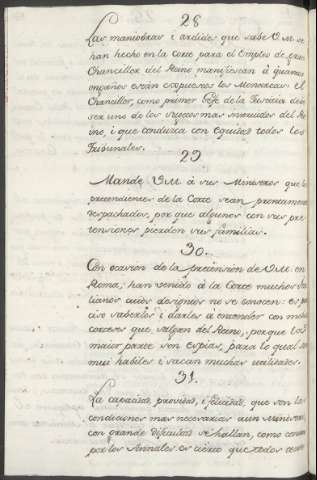 28
Las maniobras i ardides que sabe V.M. se
han hecho en la Corte para el Empleo de gran
Chanciller del Reino manifiestan à quantos
engaños están expuestos los Monarcas: el
Chanciller, como primer Gefe de la Justicia deve
ser uno de los sujetos mas instruidos del Rei
no, i que conduzca con equidad todos los
Tribunales.
29
Mande V.M. à sus Ministros que los
pretendientes de la Corte sean promptamente
despachados, por que algunos con sus pre
tensiones pierden sus familias.
30.
Con ocasion de la pretension de V.M. en
Roma, han venido à la Corte muchos Ita
lianos cuios designios no se conocen: es pre
ciso saberlos i darles à entender con mucha
cortesia que salgan del Reino, porque los
maior parte son espias, para lo qual son
mui habiles i sacan muchas utilidades.
31.
La capacidad, providad, i equidad, que son las
condiciones mas necesarias à un Ministro
con grande dificultad se hallan, como consta
por los Annales es cierto que todos